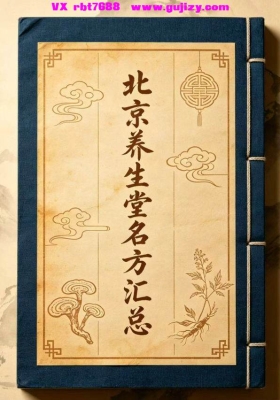 VX rbt7688 www.gujizy.com
北京养生堂名方汇总